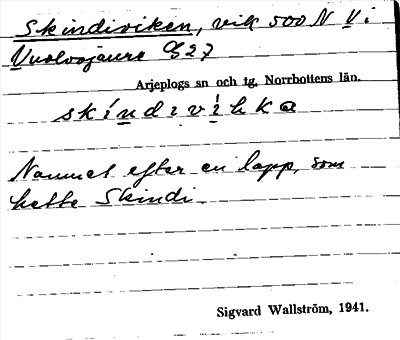 Skindiviken, vik 500 N V i
Vuolvojaure G27
Arjeplogs sn och tg, Norrbottens län.
skíndıvìkka
Namnet efter en lapp, som
hette Skindi.
Sigvard Wallström, 1941.